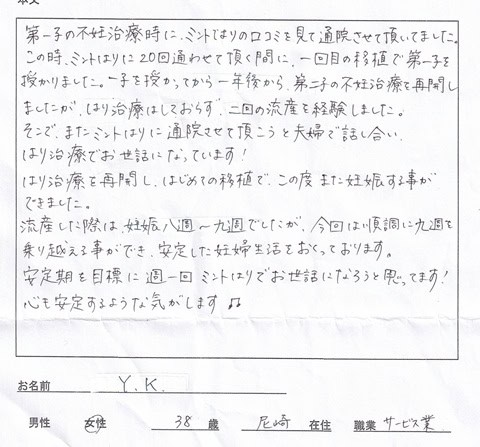 本文
第一子の不妊治療時に、ミントはりの口コミを見て通院させて頂いてました。
この時、ミントはりに20回通わせて頂く間に、一回目の移植で第一子を
授かりました。一子を授かってから一年後から、第二子の不妊治療を再開し
ましたが、はり治療はしておらず、二回の流産を経験しました。
そこで、またミントはりに通院させて頂こうと夫婦で話し合い、
はり治療でお世話になっています!
はり治療を再開し、はじめての移植で、この度また妊娠する事が
できました。
流産した際は、妊娠八週〜九週でしたが、今回は順調に九週を
乗り越える事ができ、安定した妊婦生活をおくっております。
安定期を目標に週一回ミントはりでお世話になろうと思ってます!
心も安定するような気がします♫
お名前 Y.K.
男性 女性 38 歳 尼崎 在住 職業 サービス業